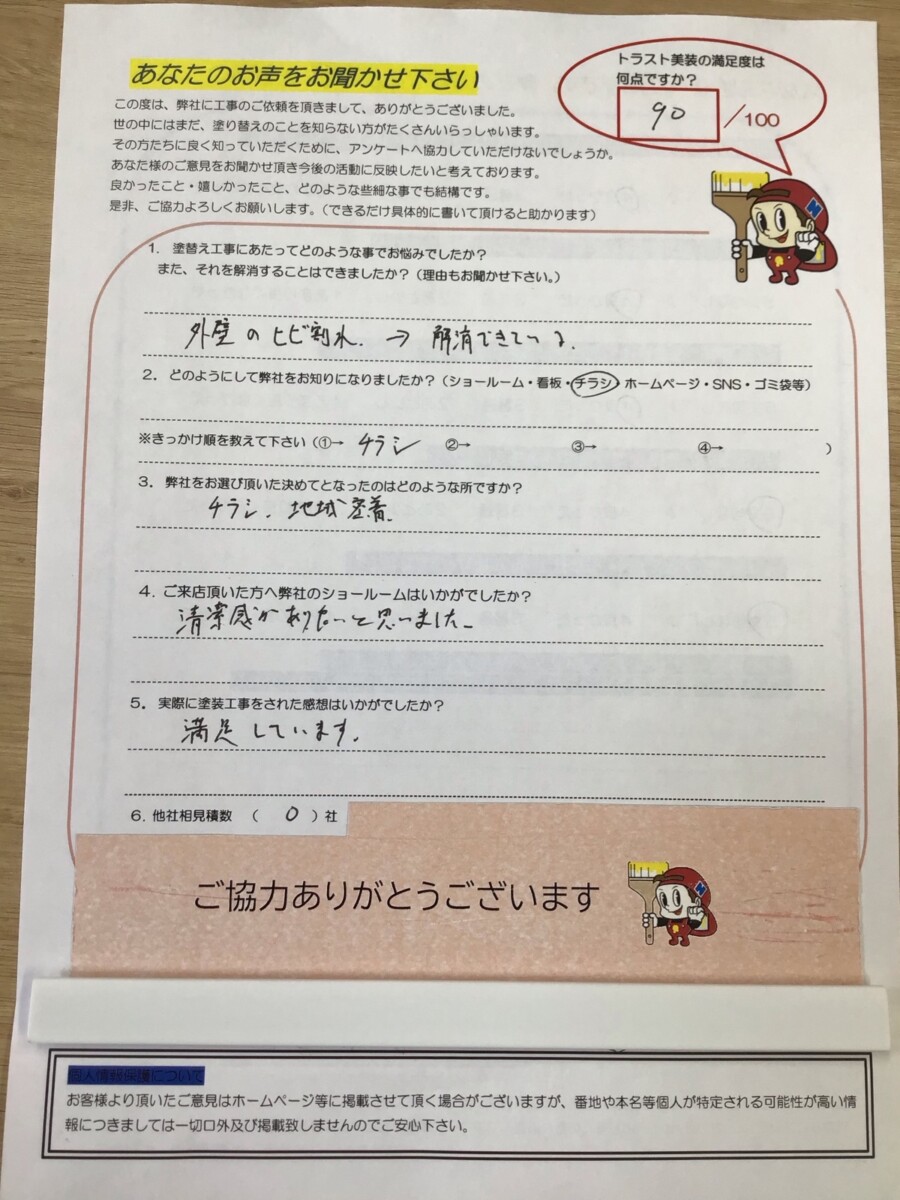 あなたのお声をお聞かせ下さい
トラスト美装の満足度は
何点ですか？
90 /100
この度は、弊社に工事のご依頼を頂きまして、ありがとうございました。
世の中にはまだ、塗り替えのことを知らない方がたくさんいらっしゃいます。
その方たちに良く知っていただくために、アンケートへ協力していただけないでしょうか。
あなた様のご意見をお聞かせ頂き今後の活動に反映したいと考えております。
良かったこと・嬉しかったこと、どのような些細な事でも結構です。
是非、ご協力よろしくお願いします。（できるだけ具体的に書いて頂けると助かります）
1． 塗替え工事にあたってどのような事でお悩みでしたか？
また、それを解消することはできましたか？（理由もお聞かせ下さい。）
外壁のヒビ割れ. → 解消できている.
2．どのようにして弊社をお知りになりましたか？（ショールーム・看板・チラシ・ホームページ・SNS・ゴミ袋等）
※きっかけ順を教えて下さい（①→ チラシ ②→ ③→ ④→ ）
3．弊社をお選び頂いた決めてとなったのはどのような所ですか？
チラシ. 地域密着.
4．ご来店頂いた方へ弊社のショールームはいかがでしたか？
清潔感がありたいと思いました.
5．実際に塗装工事をされた感想はいかがでしたか？
満足しています.
6．他社相見積数 （ 0 ）社
ご協力ありがとうございます
個人情報保護について
お客様より頂いたご意見はホームページ等に掲載させて頂く場合がございますが、番地や本名等個人が特定される可能性が高い情
報につきましては一切口外及び掲載致しませんのでご安心下さい。